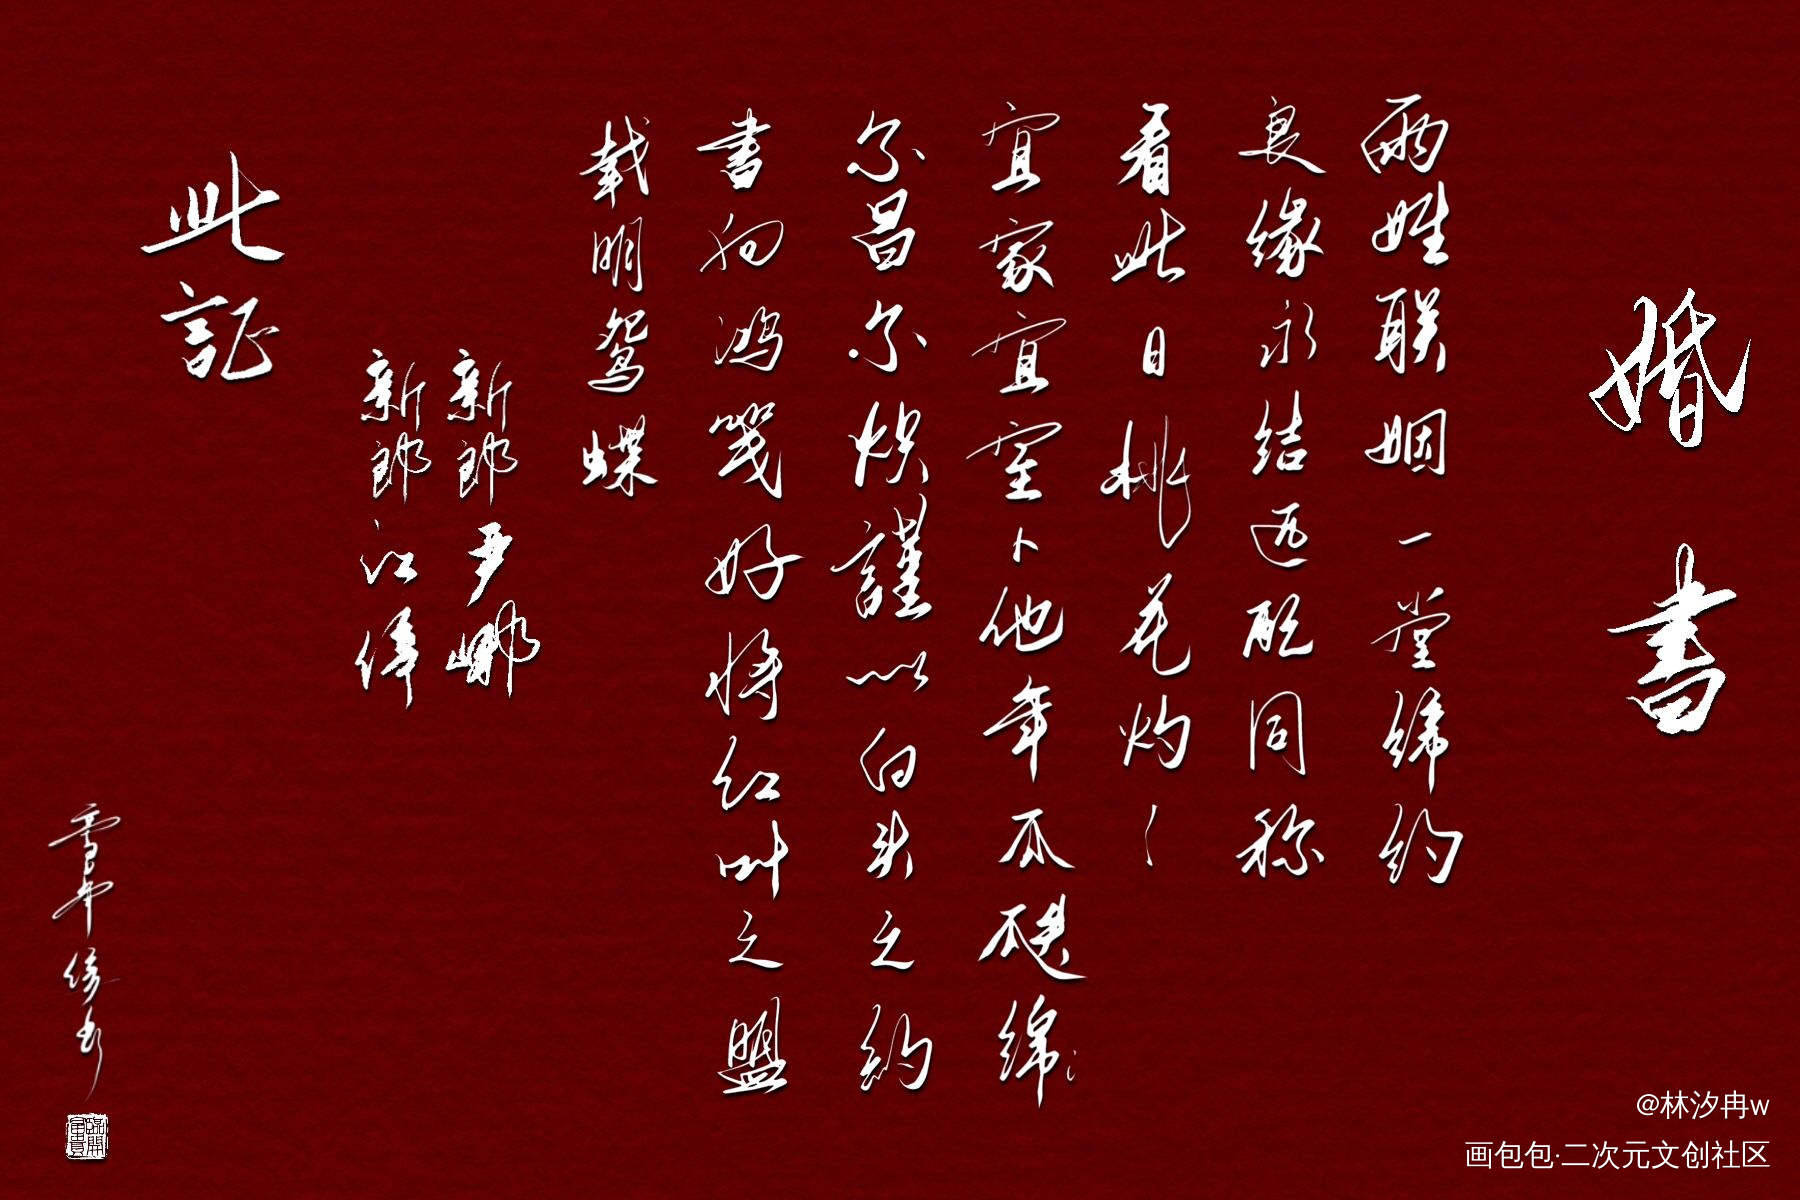 婚書
兩姓联姻一堂締約
良缘永结匹配同称
看此日桃花灼灼
宜家宜室卜他年瓜瓞绵绵
尔昌尔炽謹以白头之約
書向鸿笺好将红叶之盟
载明鸳蝶
新郎尹
新郎江
此証
@林汐冉w
画包包·二次元文创社区